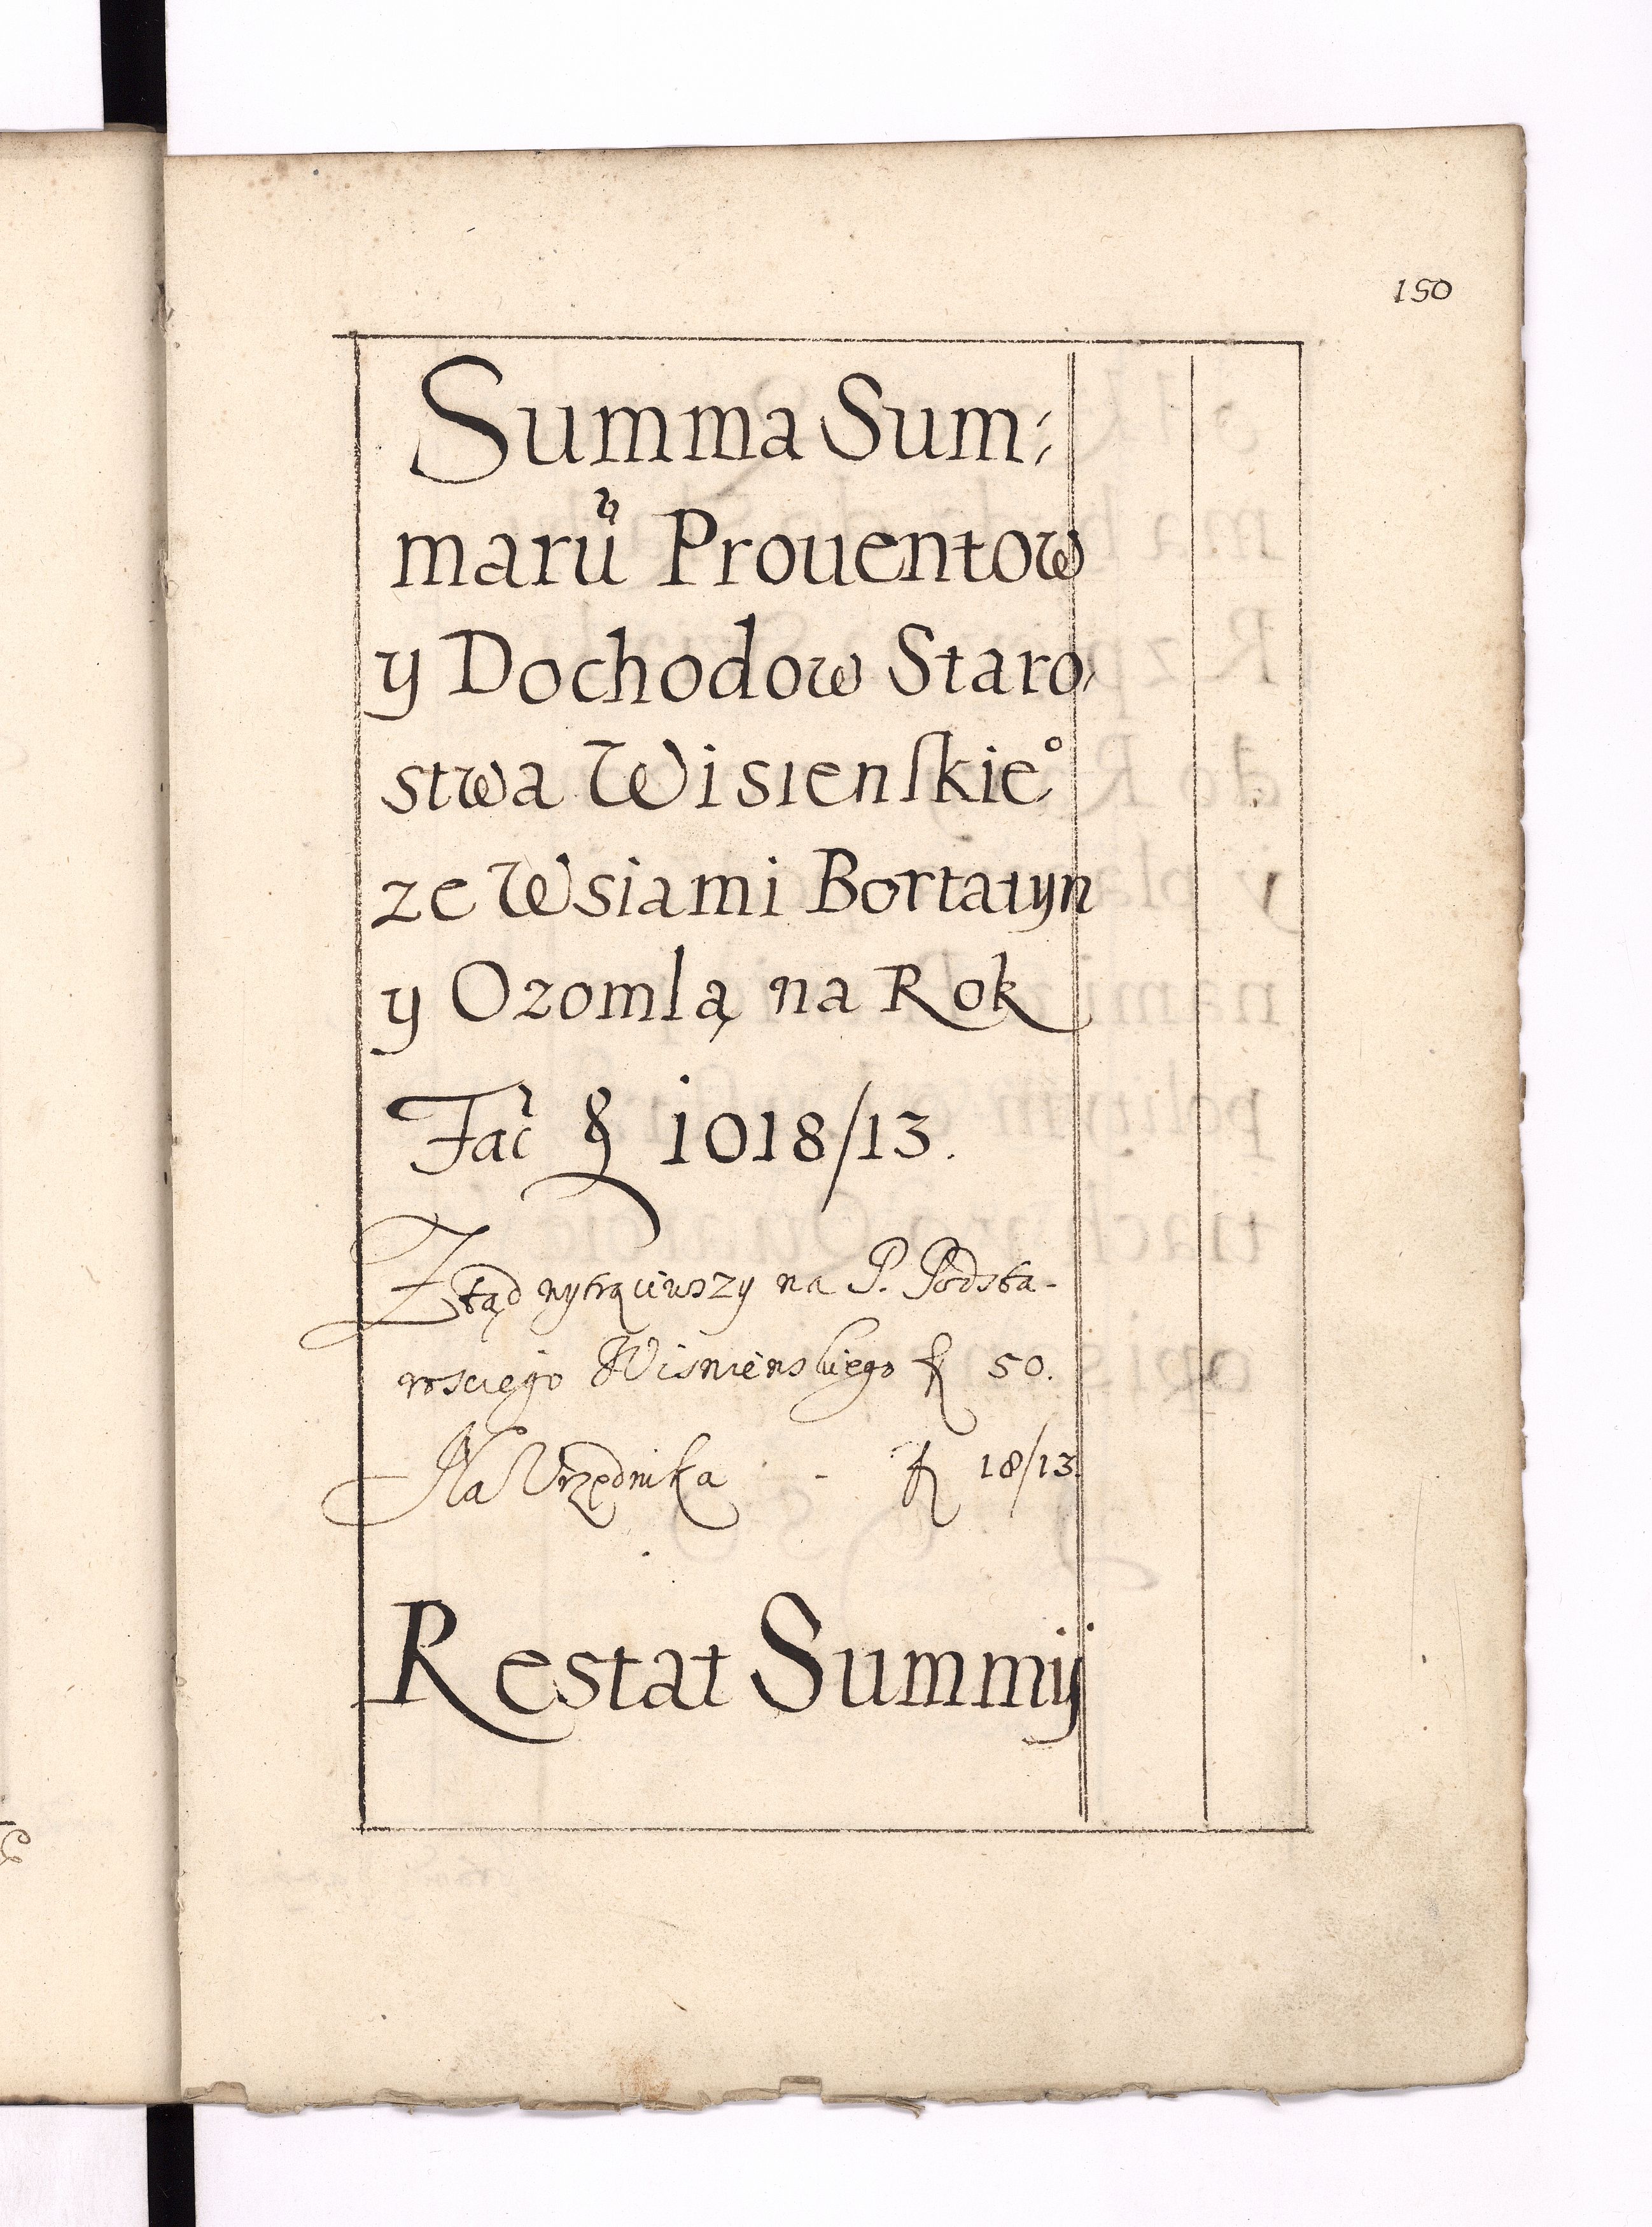 150
Summa Sum:
marũ Prouentow
y Dochodow Staro,
stwa Wisienſkie°
ze Wsiami Bortatyn
y Ozomlą na Rok
Fac̃ 1018/13.
Ztąd wytrąciwszy na P. Podsta-
rosciego Wisnienskiego 50.
Na Vrzędnika - 18/13.
Restat Summy